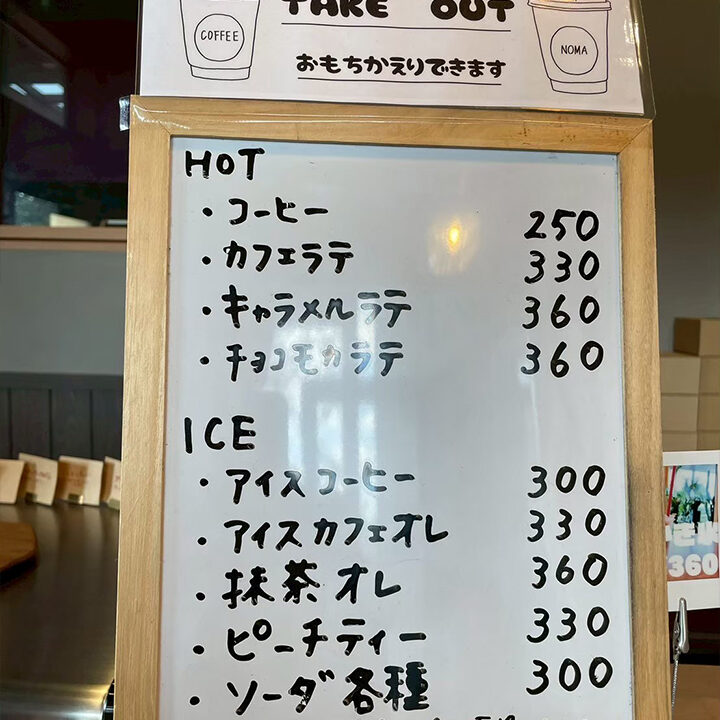 TAKE OUT
COFFEE
NOMA
おもちかえりできます
HOT
・コーヒー 250
・カフェラテ 330
・キャラメルラテ 360
・チョコモカラテ 360
ICE
・アイスコーヒー 300
・アイスカフェオレ 330
・抹茶オレ 360
・ピーチティー 330
・ソーダ各種 300
360